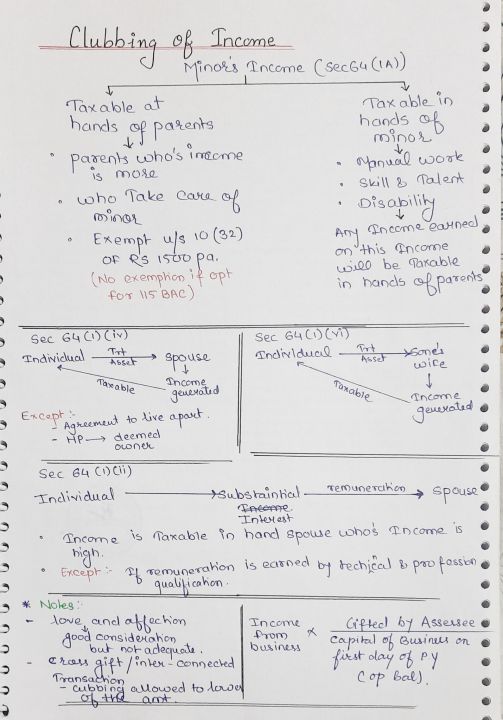 Clubbing of Income
Minor's Income (Sec 64 (1A))
Taxable at
hands of parents
• parents who's income
is more
• who Take care of
minor
• Exempt u/s 10 (32)
OF RS 1500 pa.
(No exemption if opt
for 115 BAC)
Taxable in
hands of
minor
• Manual work
• Skill & Talent
• Disability
Any Income earned
on this Income
will be Taxable
in hands of parents
Sec 64 (1) (iv)
Individual Trt Asset → spouse
Taxable
Income
generated
Except :-
- Agreement to live apart.
- HP → deemed
owner
Sec 64 (1) (vi)
Individual Trt Asset → Sone's
wife
Taxable
Income
generated
Sec 64 (1) (ii)
Individual → Substaintial remuneration → spouse
Income
Interest
• Income is Taxable in hand spouse who's Income is
high.
• Except :- If remuneration is earned by techical & profession
qualification.
* Notes :-
- love and affection
good consideration
but not adequate.
- cross gift / inter - connected
Transaction
- cubbing allowed to lower
of the amt.
Income
from
business
×
Gifted by Assessee
Capital of Business on
first day of PY
(op Bal).